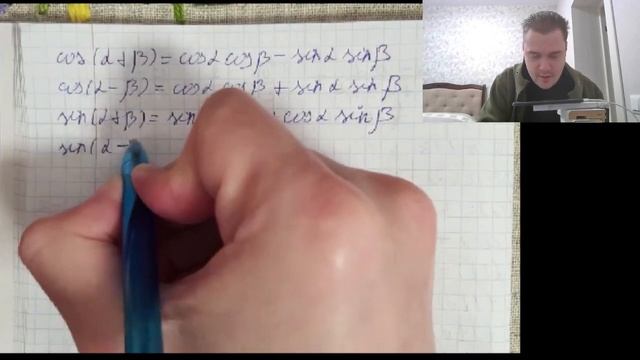 cos(α+β)=cosα cosβ-sinα sinβ
cos(α-β)=cosα cosβ+sinα sinβ
sin(α+β)= sin cosα sinβ
sin(α-